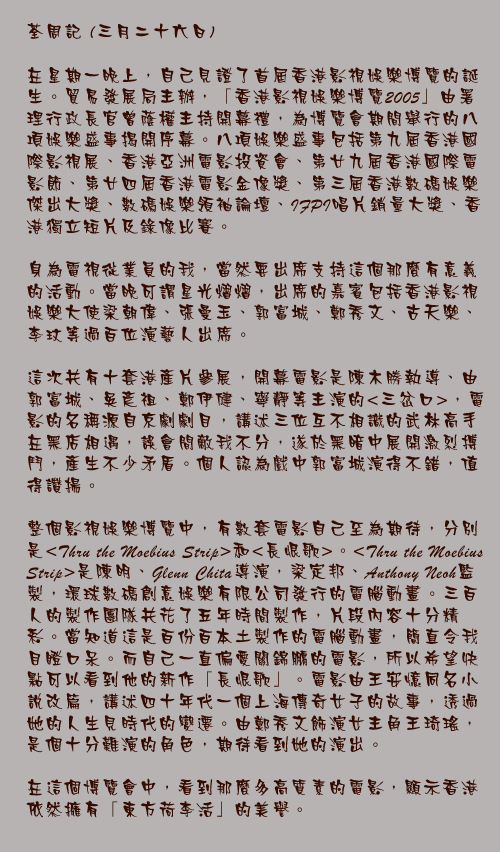 荃周記 (三月二十六日)
在星期一晚上，自己見證了首屆香港影視娛樂博覽的誕
生。貿易發展局主辦，「香港影視娛樂博覽2005」由署
理行政長官曾蔭權主持開幕禮，為博覽會期間舉行的八
項娛樂盛事揭開序幕。八項娛樂盛事包括第九屆香港國
際影視展、香港亞洲電影投資會、第廿九屆香港國際電
影節、第廿四屆香港電影金像獎、第三屆香港數碼娛樂
傑出大獎、數碼娛樂領袖論壇、IFPI唱片銷量大獎、香
港獨立短片及錄像比賽。
身為電視從業員的我，當然要出席支持這個那麼有意義
的活動。當晚可謂星光熠熠，出席的嘉賓包括香港影視
娛樂大使梁朝偉、張曼玉、郭富城、鄭秀文、古天樂、
李玟等過百位演藝人出席。
這次共有十套港產片參展，開幕電影是陳木勝執導、由
郭富城、吳彥祖、鄭伊健、寧靜等主演的<三岔口>，電
影的名稱源自京劇劇目，講述三位互不相識的武林高手
在黑店相遇，誤會間敵我不分，遂於黑暗中展開激烈搏
鬥，產生不少矛盾。個人認為戲中郭富城演得不錯，值
得讚揚。
整個影視娛樂博覽中，有數套電影自己至為期待，分別
是<Thru the Moebius Strip>和<長恨歌>。<Thru the Moebius
Strip>是陳明、Glenn Chita導演，梁定邦、Anthony Neoh監
製，環球數碼創意娛樂有限公司發行的電腦動畫。三百
人的製作團隊共花了五年時間製作，片段內容十分精
彩。當知道這是百份百本土製作的電腦動畫，簡直令我
目瞪口呆。而自己一直偏愛關錦鵬的電影，所以希望快
點可以看到他的新作「長恨歌」。電影由王安憶同名小
說改篇，講述四十年代一個上海傳奇女子的故事，透過
她的人生見時代的變遷。由鄭秀文飾演女主角王琦瑤，
是個十分難演的角色，期待看到她的演出。
在這個博覽會中，看到那麼多高質素的電影，顯示香港
依然擁有「東方荷李活」的美譽。